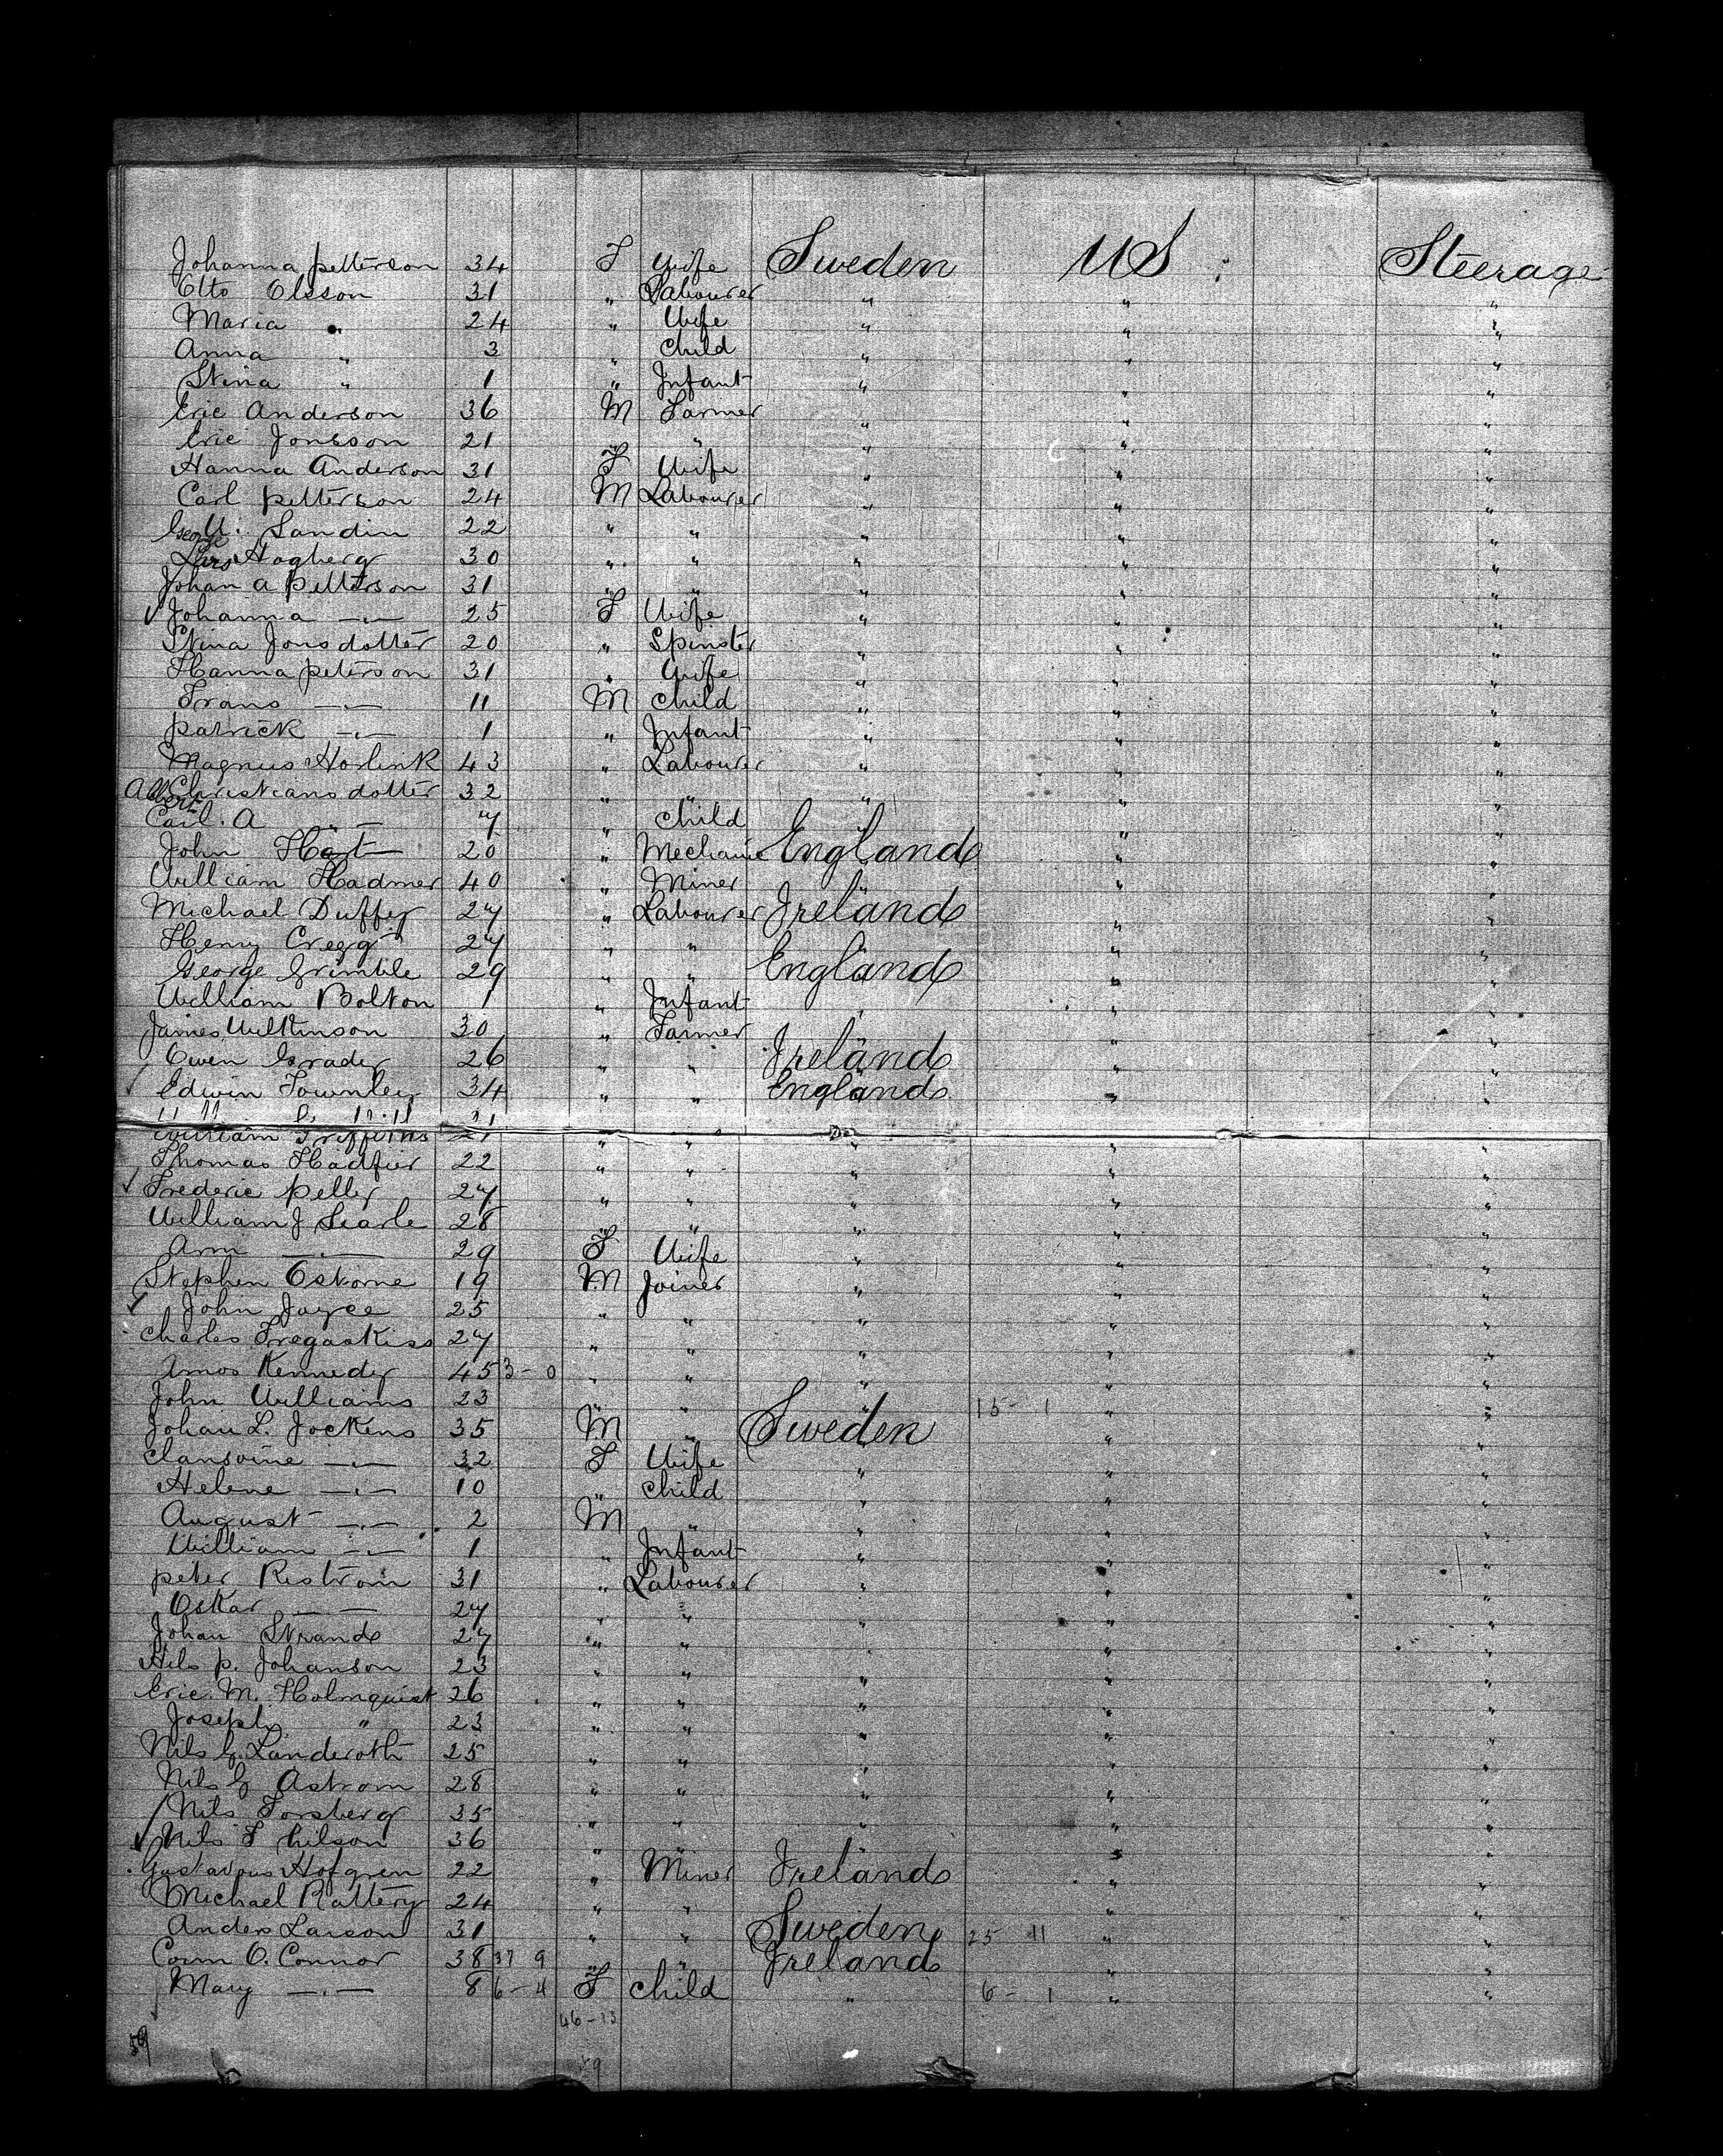 Johanna petterson 34 F Wife Sweden US : Steerage
Otto Olsson 31 " Labourer " " "
Maria " 24 " Wife " " "
Anna " 3 " Child " " "
Stina " 1 " Infant " " "
Eric Anderson 36 M Farmer " " "
Eric Jonsson 21 " " " "
Hanna Anderson 31 F Wife " " "
Carl petterson 24 M Labourer " " "
George Sandin 22 " " " " "
Lars Hogberg 30 " " " " "
Johan a petterson 31 " " " " "
Johanna -"- 25 F Wife " " "
Stina Jonsdotter 20 " Spinster " " "
Hanna peterson 31 " Wife " " "
Frans -"- 11 M Child " " "
patrick -"- 1 " Infant " " "
Magnus 43 " Labourer " " "
Albert Christiansdotter 32 " " " " "
Carl. A -"- 7 " Child " " "
John Hart 20 " Mechanic England " "
William Hadmer 40 " Miner " " "
Michael Duffey 27 " Labourer Ireland " "
Henry Cregg 27 " " " " "
George Grimble 29 " " England " "
William Bolton 1 " Infant " " "
James Wilkinson 30 " Farmer " " "
Owen Grader 26 " " Ireland " "
Edwin Townley 34 " " England " "
William Griffiths 21 " " " " "
Thomas 22 " " " " "
Frederic pelly 27 " " " " "
William J Searle 28 " " " " "
Ann -"- 29 F Wife " " "
Stephen Osborne 19 M Joiner " " "
John Joyce 25 " " " " "
Charles Tregaskiss 27 " " " " "
Amos Kenneder 45 3-0 " " " " "
John Williams 23 " " " 15-1 " "
Johan L. Jockens 35 M " Sweden " "
-"- 32 F Wife " " "
Helene -"- 10 " Child " " "
August -"- 2 M " " " "
William -"- 1 " Infant " " "
peter Ristrom 31 " Labourer " " "
Oskar -"- 27 " " " " "
Johan Strand 27 " " " " "
Nils p. Johanson 23 " " " " "
Eric. M. Holmquist 26 " " " " "
Joseph " 23 " " " " "
Nils G. Landeroth 25 " " " " "
Nils G Astrom 28 " " " " "
Nils Forsberg 35 " " " " "
Nils F Nilson 36 " " " " "
Gustavous Hofgren 22 " Miner Ireland " "
Michael Rattery 24 " " " " "
Anders Larson 31 " " Sweden 25 11 " "
Conn O. Connor 38 37 9 " " Ireland " "
Mary -"- 8 6-4 F Child " 6-1 " "
46-13
59
59